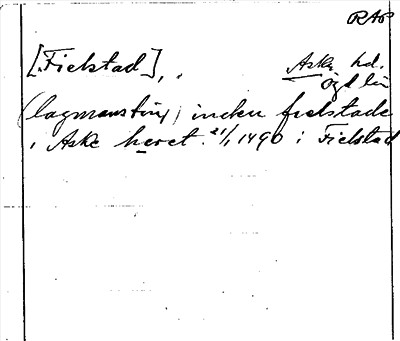 RAP
[Fielstad], Aske hd.
Ögl län
(lagmansting) inden fielstade
i Aske heret. 21/1 1490 i Fielstad